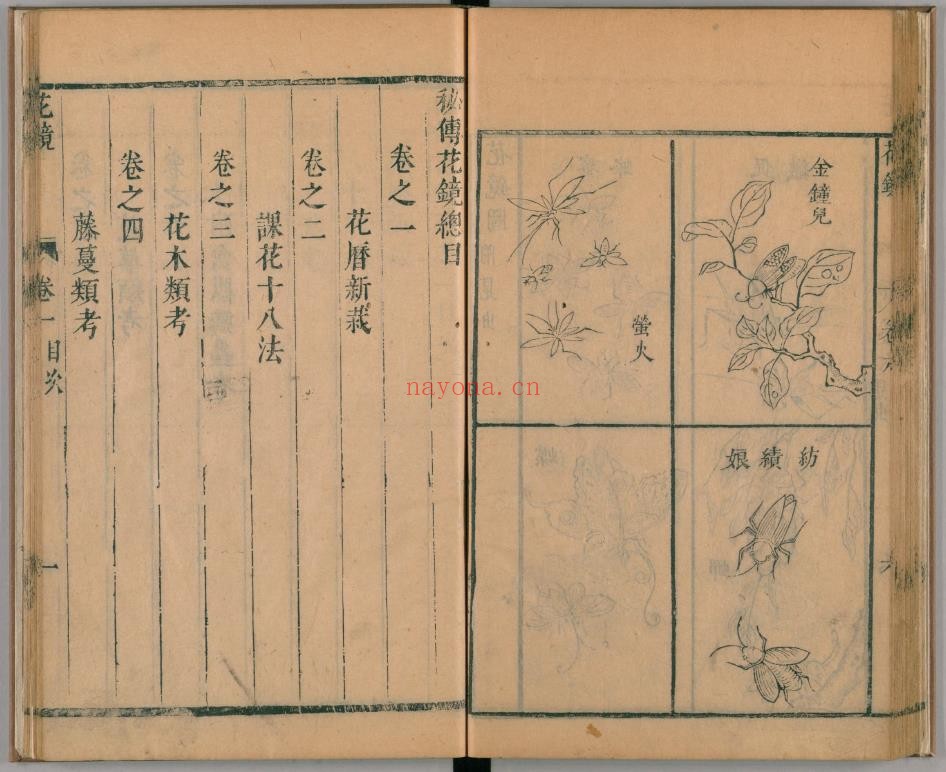 金鐘兒
螢火
紡績娘
秘傳花鏡總目
卷之一
花曆新栽
卷之二
課花十八法
卷之三
花木類考
卷之四
藤蔓類考
花鏡
卷一
目次
一
nayona.cn